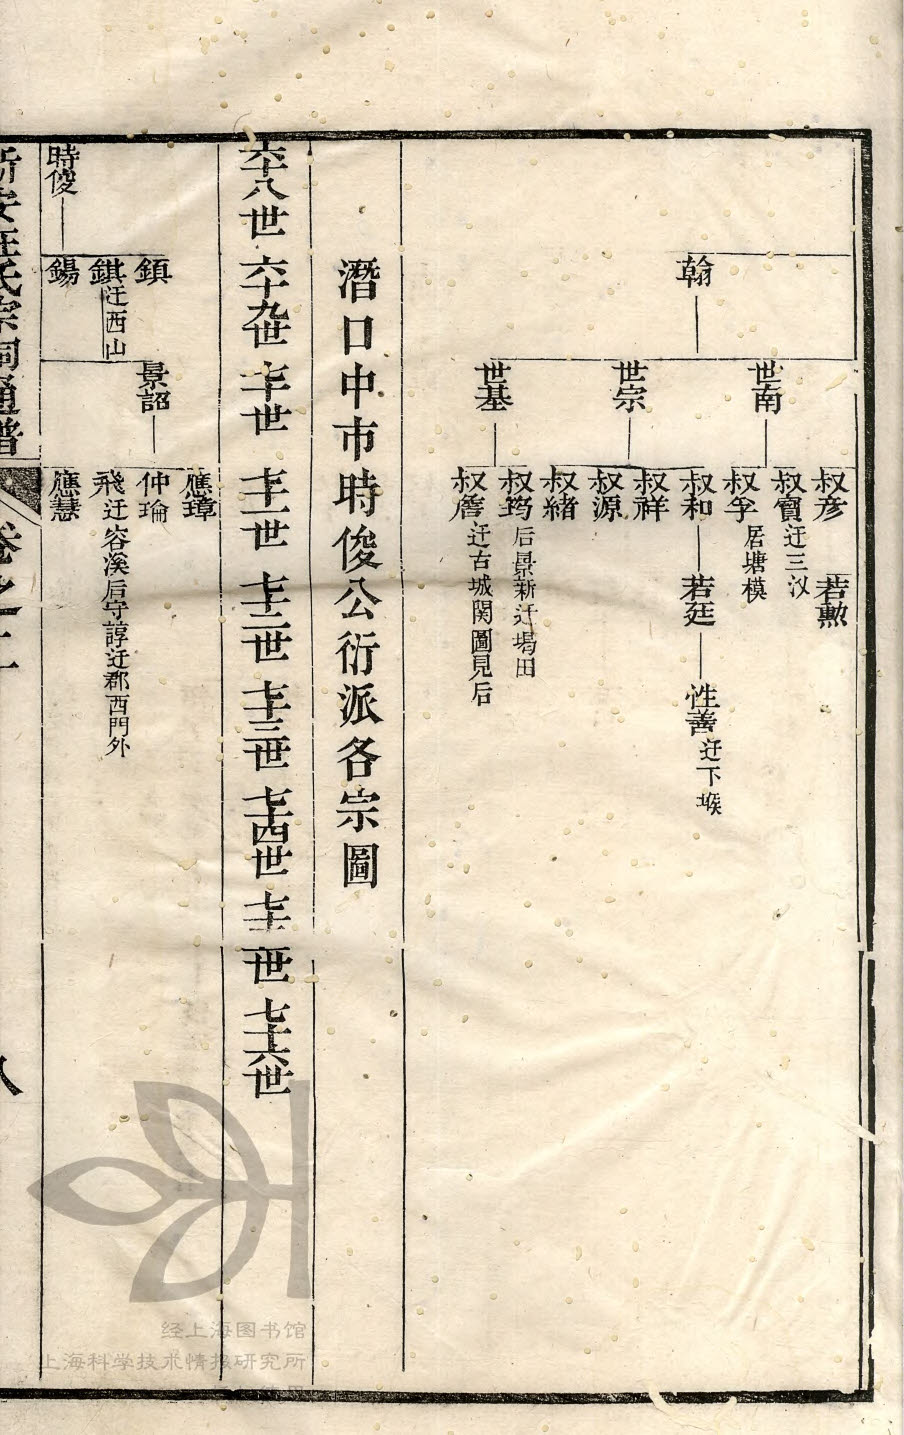 翰
世南
世宗
世基
叔彦
若勲
叔寳迁三汊
叔孚居塘模
叔和
若廷
性善迁下堠
叔祥
叔源
叔緒
叔筠后景新迁堨田
叔詹迁古城関圖見后
潛口中市時俊公衍派各宗圖
六十八世 六十九世 七十世 七十一世 七十二世 七十三世 七十四世 七十五世 七十六世
時俊
鎮
錤迁西山
錫
景詔
應璋
仲瑜
飛迁容溪后守諄迁郡西門外
應慧
新安汪氏宗祠通譜
卷之十一
八
经上海图书馆
上海科学技术情报研究所